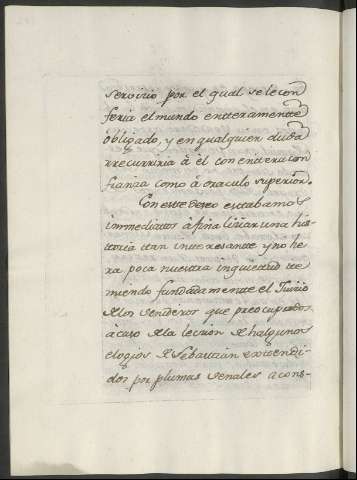 servicio por el qual se le con
feria el mundo entteramentte
obligado, y en qualquier duda
rrecurriria â èl con entterà con
fianza como à oraculo superior.
Con este deseo esttabamos
immediattos â finalizar una his-
ttoria ttan intteresantte y no he
ra poca nuestra inquiettud tte
miendo fundadamentte el Juicio
de los venideros que preocupados
àcaso de la leccion de halgunos
elogios de Sebastian extendi-
dos por plumas venales acons-